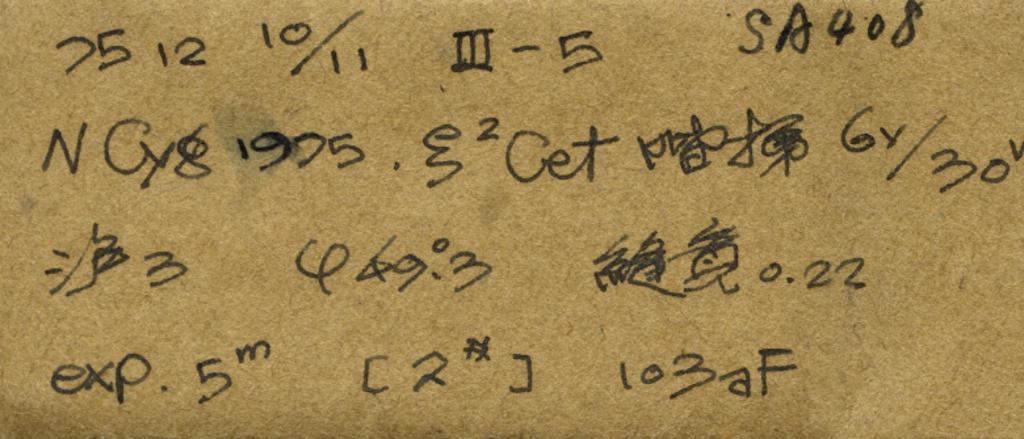 75 12 10/11 III-5 SA408
N Cyg 1975. ξ²Cet 暗擇 6v/30v
净3 φ49°.3 縫寬0.22
exp. 5ᵐ [2#] 103aF